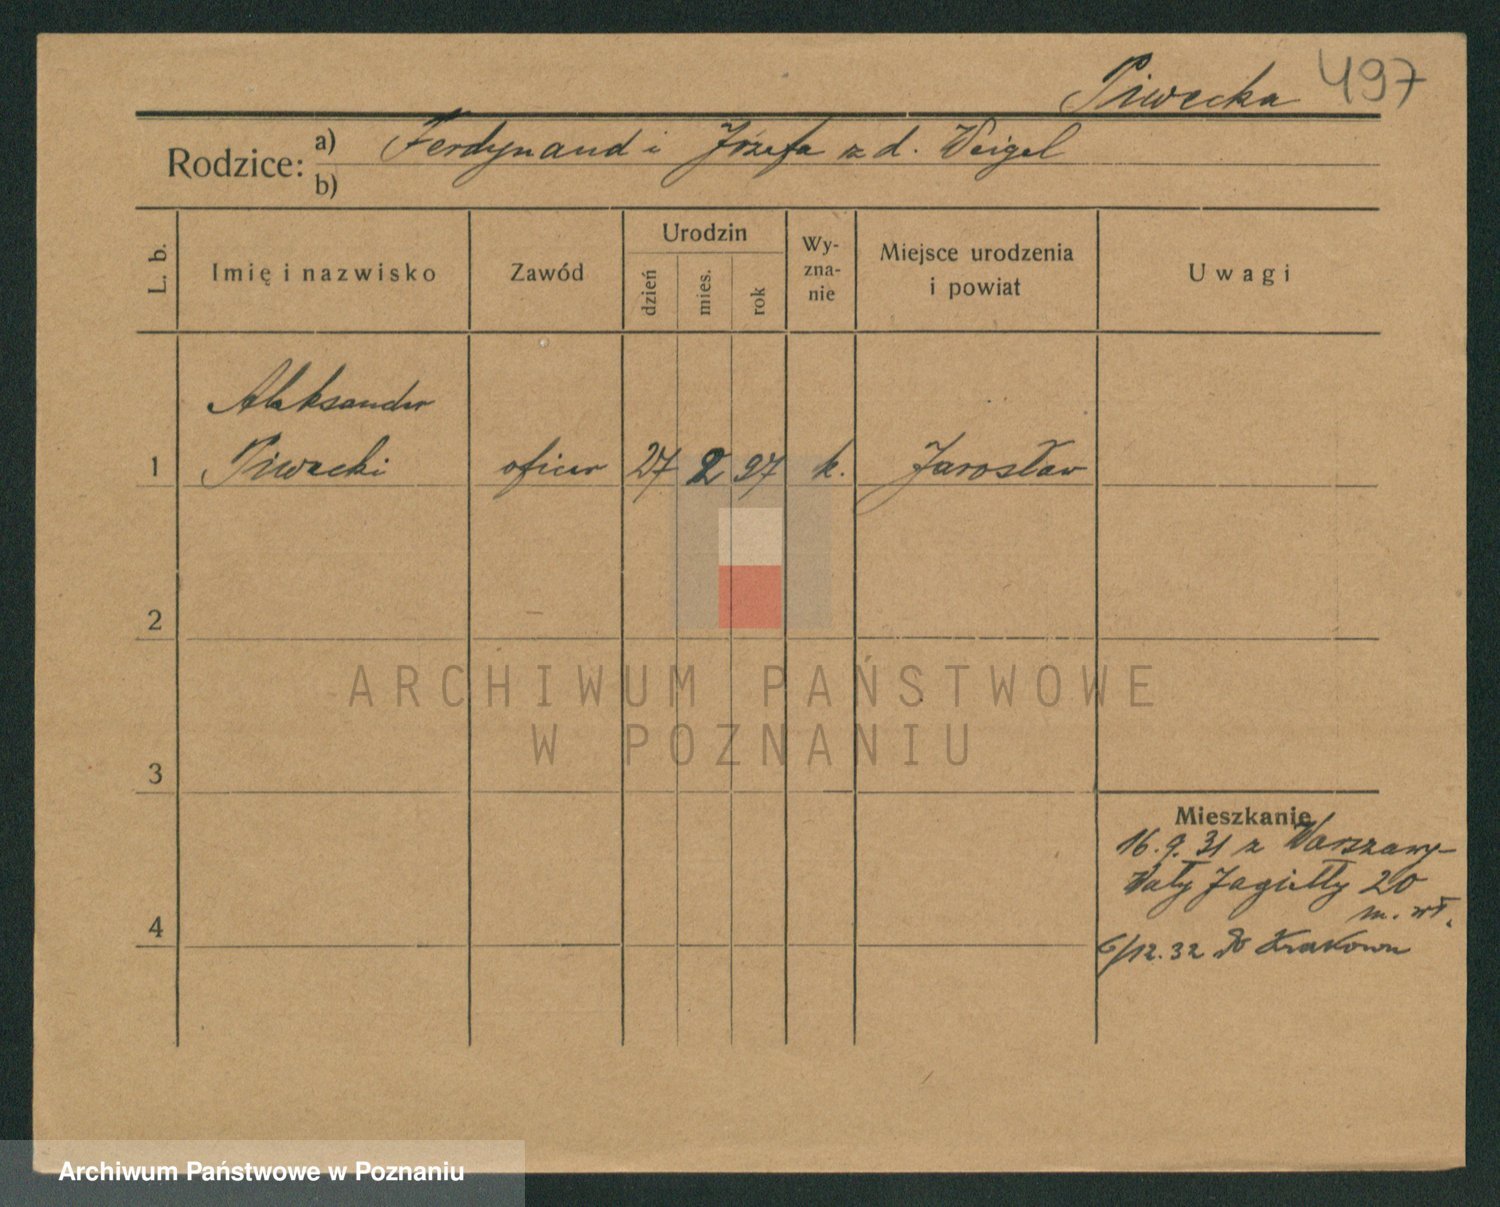 Piwecka 497
Rodzice: a) Ferdynand i Józefa z d. Weigel
b)
L. b.
Imię i nazwisko
Zawód
Urodzin
dzień
mies.
rok
Wy-
zna-
nie
Miejsce urodzenia
i powiat
Uwagi
Aleksander
1 Piwecki oficer 27 2 97 k. Jarosław
2
ARCHIWUM PAŃSTWOWE
W POZNANIU
3
Mieszkanie
16.9.31 z Warszawy
Wały Jagiełły 20
4
6/12.32 do Krakowa
Archiwum Państwowe w Poznaniu